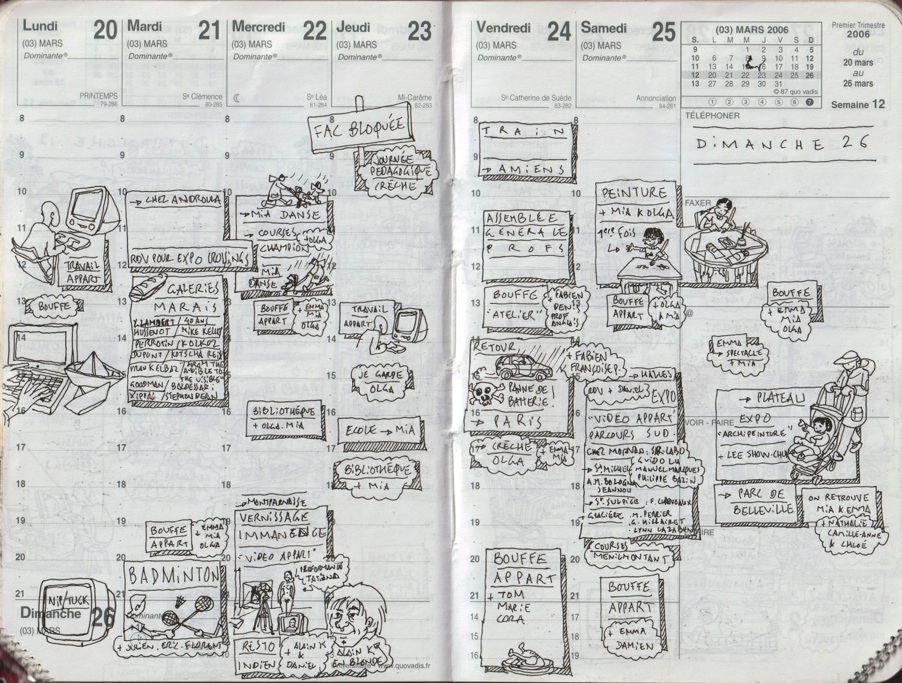 Lundi 20
(03) MARS
Dominante®
PRINTEMPS
79-286
Mardi 21
(03) MARS
Dominante®
Sᵉ Clémence
80-285
Mercredi 22
(03) MARS
Dominante®
Sᵉ Léa
81-284
Jeudi 23
(03) MARS
Dominante®
Mi-Carême
82-283
Vendredi 24
(03) MARS
Dominante®
Sᵉ Catherine de Suède
83-282
Samedi 25
(03) MARS
Dominante®
Annonciation
84-281
(03) MARS 2006
S. L M M J V S D
9 1 2 3 4 5
10 6 7 8 9 10 11 12
11 13 14 15 16 17 18 19
12 20 21 22 23 24 25 26
13 27 28 29 30 31
© 87 quo vadis
1 2 3 4 5 6 7
Premier Trimestre
2006
du
20 mars
au
26 mars
Semaine 12
TÉLÉPHONER
DIMANCHE 26
FAXER
TRAVAIL
APPART
BOUFFE
NIP/TUCK
Dimanche 26
(03) MARS
→ CHEZ ANDROULLA
RDV POUR EXPO CROSSINGS
GALERIES
MARAIS
Y. LAMBERT / 40 ANS
HUSSENOT / MIKE KELLEY
PERROTIN /
GOODMAN /
BOUFFE
APPART
+ EMMA
MIA
OLGA
BADMINTON
+ JULIEN. ERIC. FLORENT
→ MIA DANSE
→ COURSES
CHAMPION
+ OLGA
MIA
DANSE
BOUFFE
APPART
+ EMMA
MIA
OLGA
BIBLIOTHÉQUE
+ OLGA. MIA
→ MONTPARNASSE
VERNISSAGE
IMMANENCE
"VIDEO APPART"
PERFORMANCE
TATIANA
RESTO
INDIEN
+ ALAIN K
DANIEL
ALAIN K
BLONDE
www.quovadis.fr
FAC BLOQUÉE
JOURNÉE
PEDAGOGIQUE
CRÈCHE
TRAVAIL
APPART
JE GARDE
OLGA
ECOLE → MIA
BIBLIOTHÈQUE
+ MIA
TRAIN
→ AMIENS
ASSEMBLÉE
GENERALE
PROFS
BOUFFE
"ATELIER"
+ FABIEN
DENIS
PROF
ANGLAIS
RETOUR
+ FABIEN
FRANÇOISE
PANNE DE
BATTERIE
→ PARIS
17h → CRÈCHE
OLGA
+ EMMA
MIA
BOUFFE
APPART
+ TOM
MARIE
CORA
PEINTURE
+ MIA & OLGA
1ère FOIS
BOUFFE
APPART
+ OLGA
& MIA
→ HALLES
EXPO
"VIDEO APPART"
PARCOURS SUD
→ ST MICHEL
A.M. BOLOGNA
JEANNOU
GUIDO LU
MANUEL MARQUES
PHILIPPE BAZIN
→ ST SULPICE
GLACIÈRE M. PERRIER
COURSES
MENILMONTANT
BOUFFE
APPART
+ EMMA
DAMIEN
BOUFFE
+ EMMA
MIA
OLGA
EMMA
→ SPECTACLE
+ MIA
VOIR - FAIRE
→ PLATEAU
EXPO
"ARCHIPEINTURE"
+ LEE SHOW-CHU
→ PARC DE
BELLEVILLE
ON RETROUVE
MIA & EMMA
+ NATHALIE
CAMILLE. ANNE
& CHLOÉ